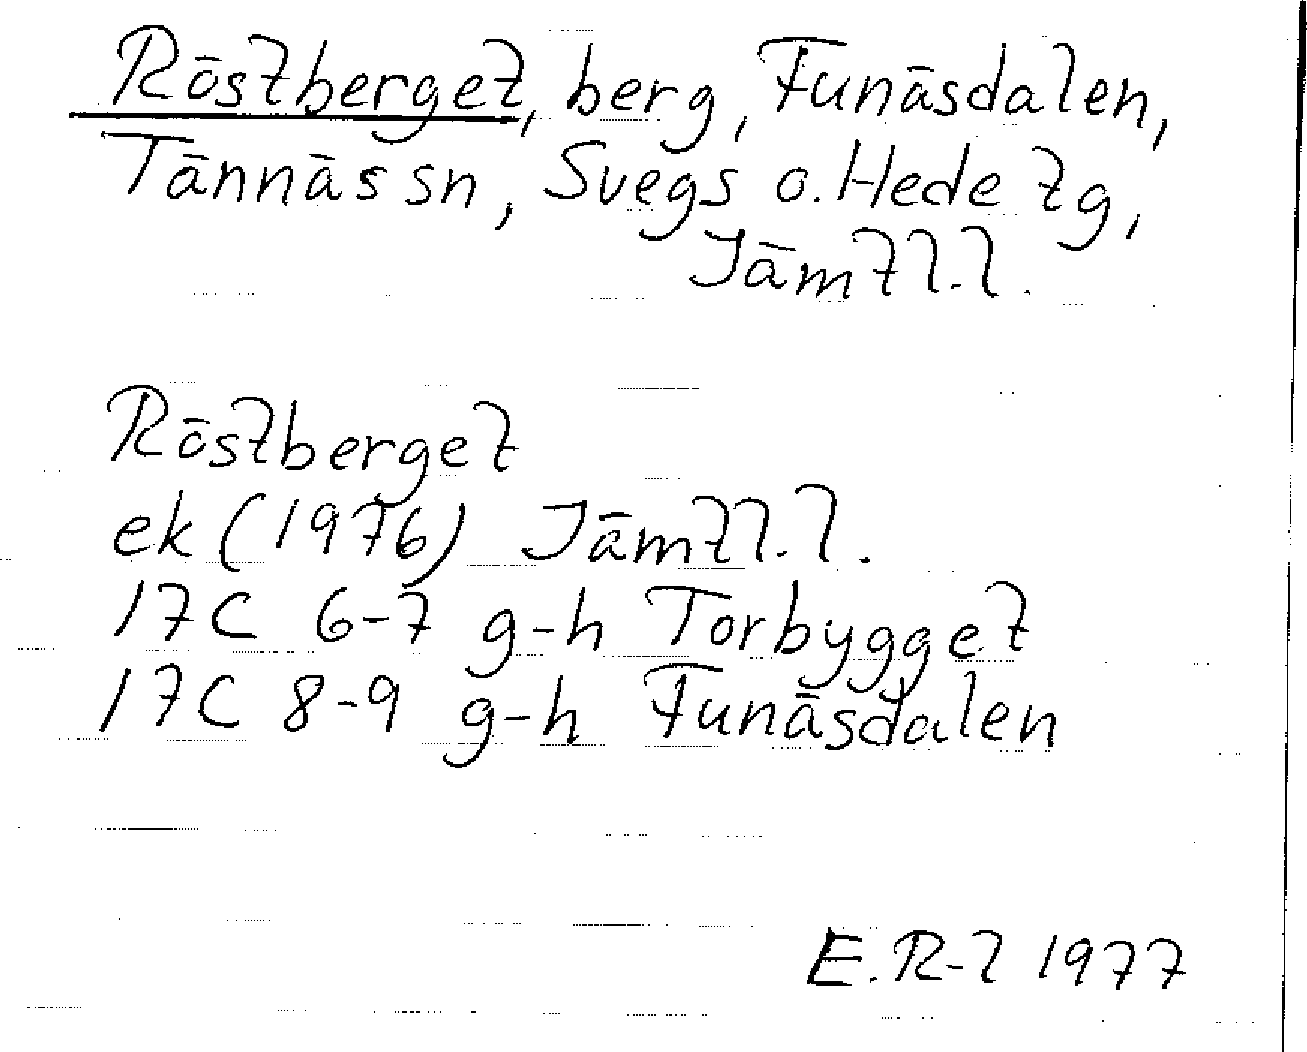 Röstberget, berg, Funäsdalen,
Tännäs sn, Svegs o. Hede tg,
Jämtl. l.
Röstberget
ek (1976) Jämtl. l.
17C 6-7 g-h Torbygget
17C 8-9 g-h Funäsdalen
E. R-l 1977